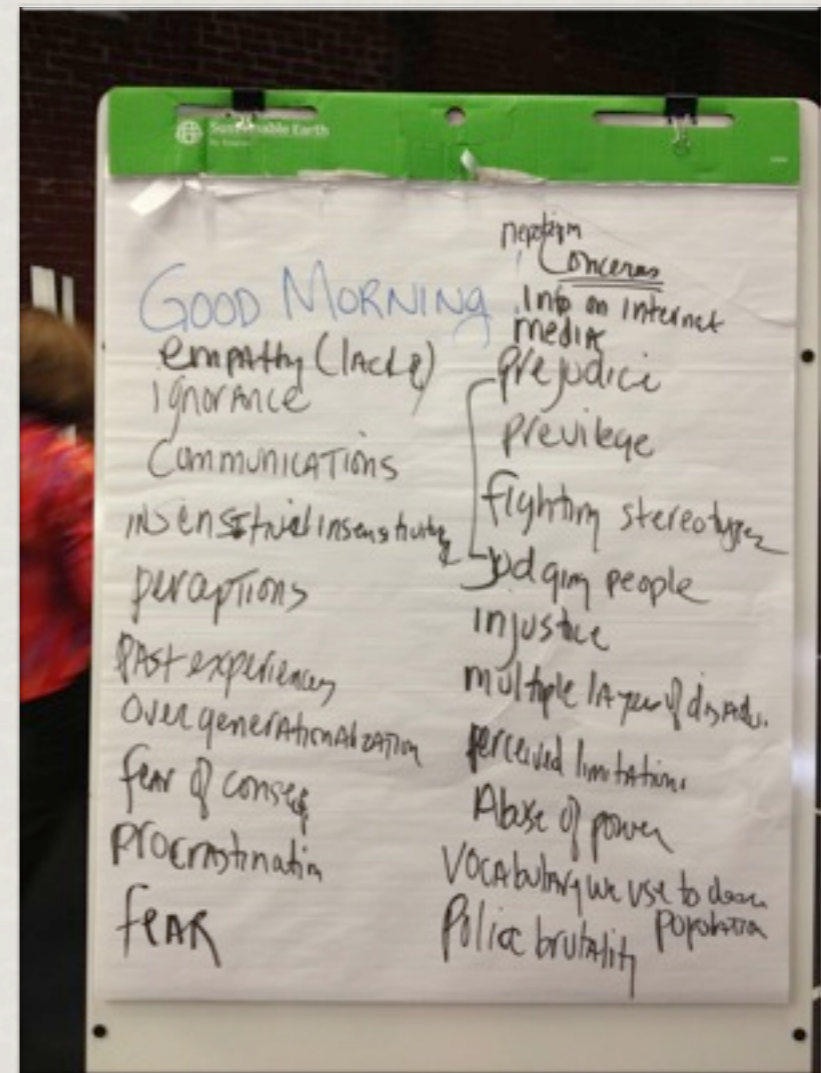 Sustainable Earth
GOOD MORNING
empathy (lack of)
ignorance
Communications
insensitivity
perceptions
Past experiences
Over generationalization
fear of conseq
Procrastination
fear
nepotism
Concerns
info on internet
media
prejudice
previlege
fighting stereotypes
judging people
injustice
multiple layers of disadv.
perceived limitations
Abuse of power
Vocabulary we use to
population
Police brutality